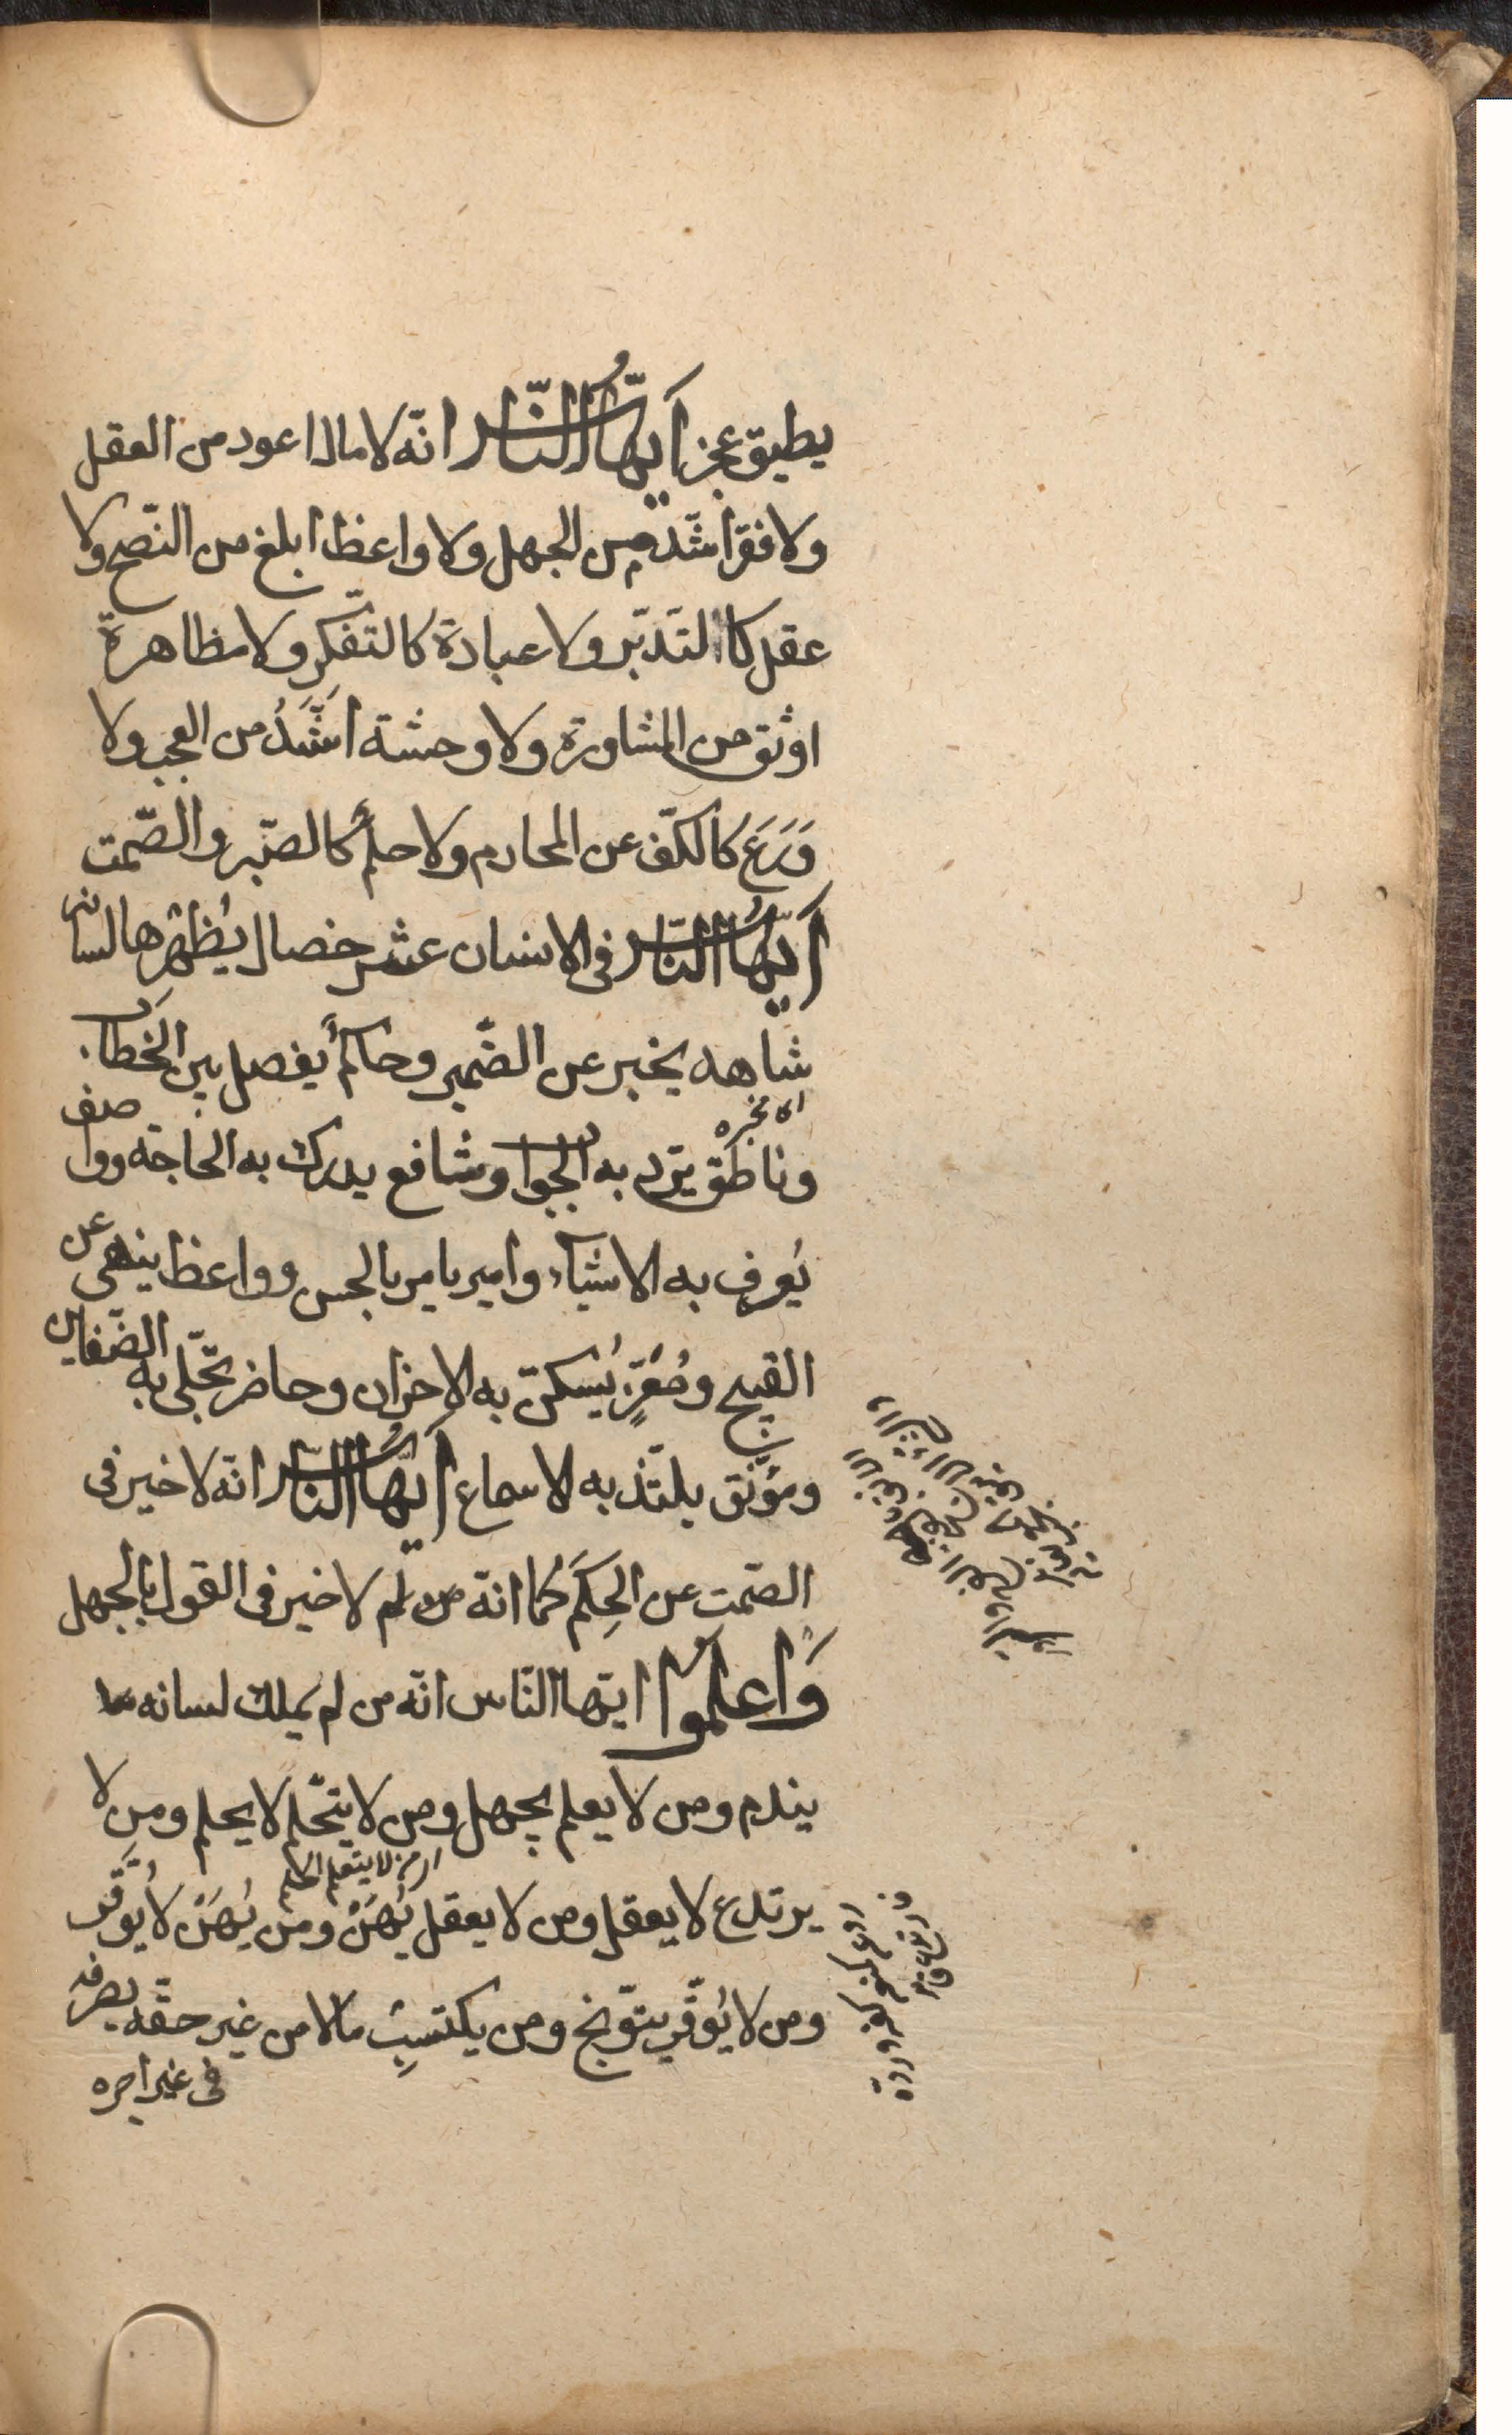 يطيق عجز أَيُّهَا النَّاس انّه لا مال اعود من العقل
ولا فقر اشّد من الجهل ولا واعظ ابلغ من النّصح ولا
عقل كا التدبّر ولا عبادة كالتفّكر ولا مظاهرة
اوثق من المشاورة ولا وحشة اشَّدُ من العجب ولا
وَرَعَ كالكفّ عن المحارم ولا حلم كالصّبر والصّمت
أَيُّهَا النَّاس فى الانسان عشر خصال يُظهرها لسانه
شاهد يخبر عن الضّمير وحاكم يفصل بين الخطاب
وناطق يّرد به الجواب وشافع يدرك به الحاجة وواصف
يُعرف به الاشياء وامير يامر بالحسن وواعظ ينهى عن
القبيح ومُعَزٍّ يُسكن به الاحزان وحاضر تجّلى به الضّغاين
ومُونق يلتّذ به الاسماع أَيُّهَا النَّاس انّه لا خير فى
الصّمت عن الحِكَم كما انّه لا خير فى القول بالجهل
وَاعلَمُوا ايّها النّاس انّه من لم يملك لسانه
يندم ومن لا يعلم يجهل ومن لا يتحّلم لا يحلم ومن لا
يرتدع لا يعقل ومن لا يعقل يُهَنْ ومن يُهَنْ لا يُوَقَّر
ومن لا يُوقّر يتوّبخ ومن يكتسب مالا من غير حقّه يصرفه
فى غير اجره